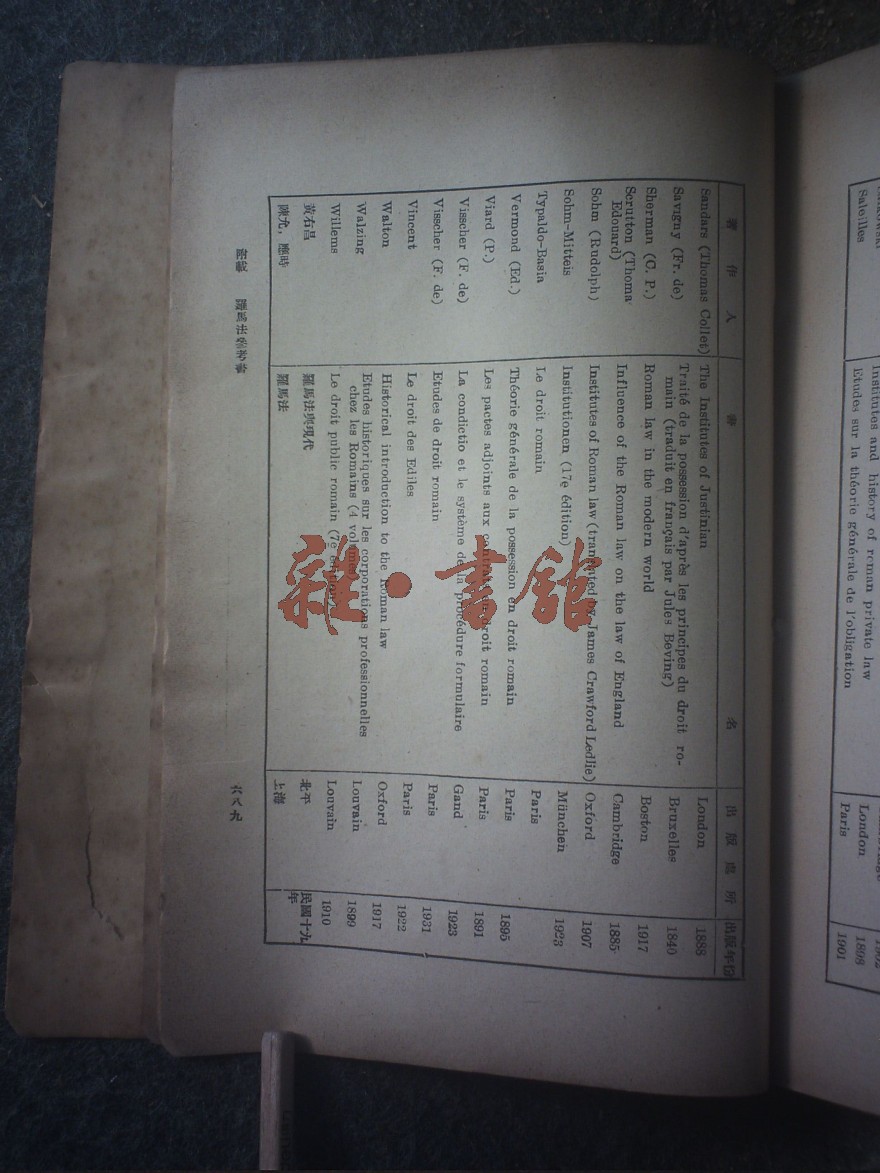 著作人 書名 出版處所 出版年份
Sandars (Thomas Collet) The Institutes of Justinian London 1888
Savigny (Fr. de) Traité de la possession d'après les principes du droit ro-
main (traduit en français par Jules Beving) Bruxelles 1840
Sherman (C. P.) Roman law in the modern world Boston 1917
Scrutton (Thoma Influence of the Roman law on the law of England Cambridge 1885
Edouard)
Sohm (Rudolph) Institutes of Roman law (translated by James Crawford Ledlie) Oxford 1907
Sohm-Mitteis Institutionen (17e édition) München 1923
Typaldo-Basia Le droit romain Paris
Vermond (Ed.) Théorie générale de la possession en droit romain Paris 1895
Viard (P.) Les pactes adjoints aux contrats droit romain Paris 1891
Visscher (F. de) La condictio et le système de la procédure formulaire Gand 1923
Visscher (F. de) Etudes de droit romain Paris 1931
Vincent Le droit des Ediles Paris 1922
Walton Historical introduction to the Roman law Oxford 1917
Walzing Etudes historiques sur les corporations professionnelles
chez les Romains (4 volumes Louvain 1899
Willems Le droit public romain (7e Louvain 1910
黃右昌 羅馬法與現代 北平 民國十九
年
陳允，應時 羅馬法 上海
附錄 羅馬法參考書
六八九
Saleilles
Institutes and history of roman private law
Etudes sur la théorie générale de l'obligation
London 1898
Paris 1901
雜·書館